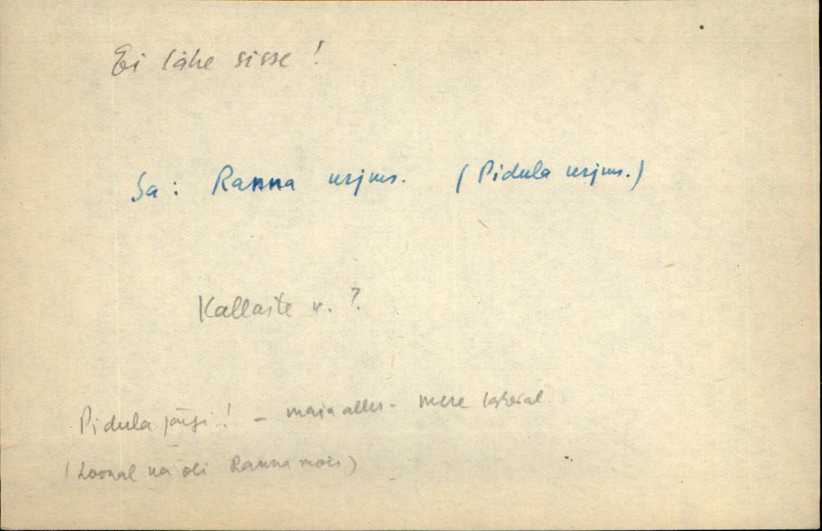 Ei lähe sisse!
Sa: Ranna (Pidula
Kallaste v. ?
Pidula järgi! – maja alles – mere lähedal
(Loonal ka oli Ranna mõis)